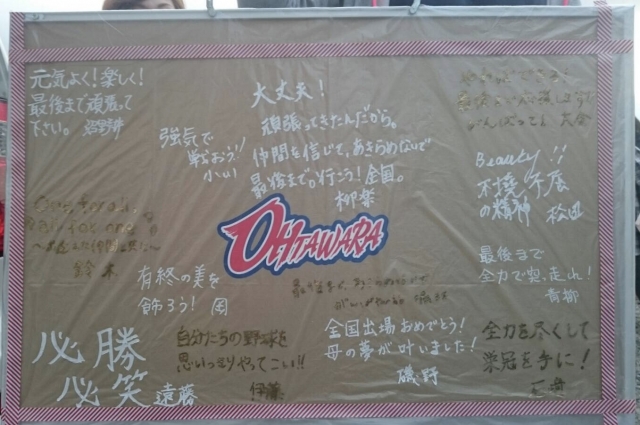 元気よく!楽しく!
最後まで頑張って
下さい。
大丈夫!
頑張ってきたんだから。
仲間を信じて、あきらめないで
最後まで。行こう!全国。
柳楽
強気で
戦おう!
小山
できる!
がんばってる
Beauty!!
不撓不屈
の精神 松田
One for all,
all for one
鈴木
OHTAWARA
有終の美を
飾ろう! 岡
最後まで
全力で突っ走れ!
青柳
必勝
必笑 遠藤
自分たちの野球を
思いっきりやってこい!!
伊藤
全国出場おめでとう!
母の夢が叶いました!
磯野
全力を尽くして
栄冠を手に!